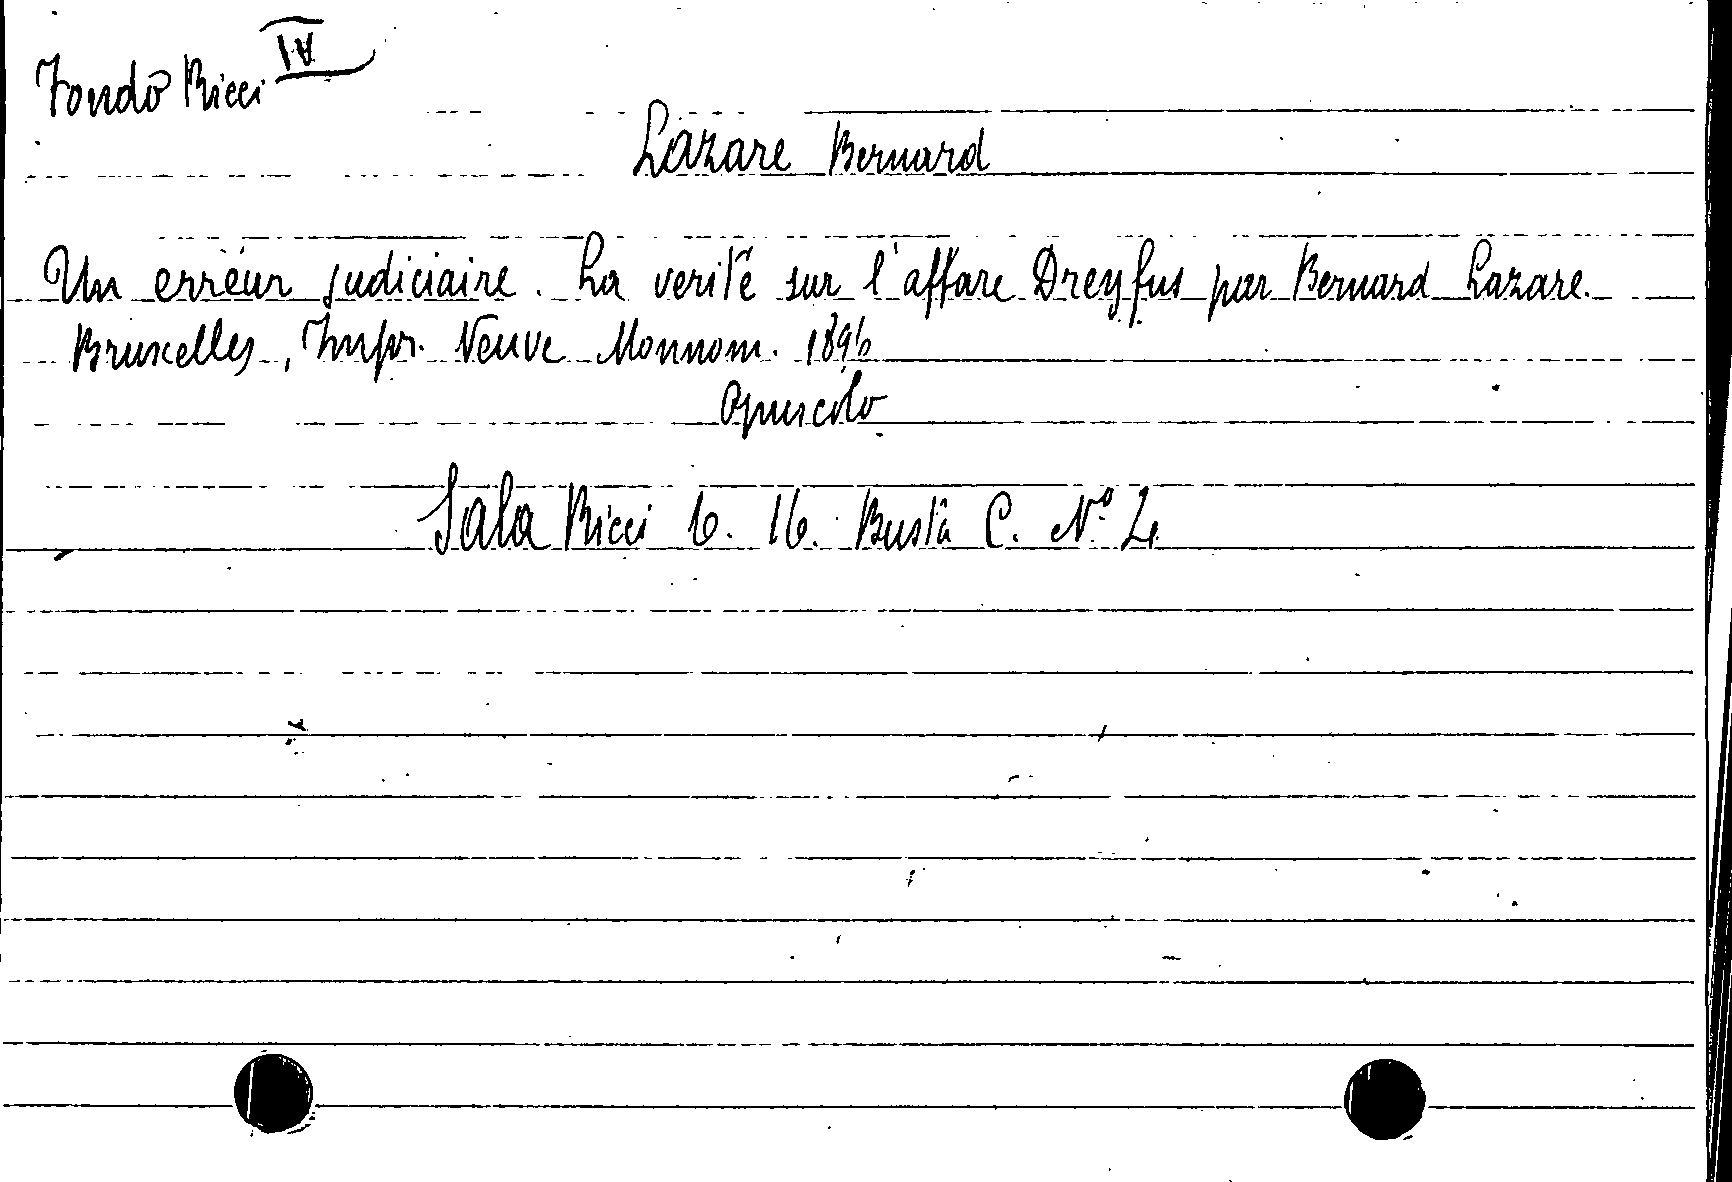 Fondo Ricci IV
Lazare Bernard
Un erreur judiciaire. La verité sur l'affare Dreyfus par Bernard Lazare.
Bruxelles, Impr. Veuve Monnom. 1896
Opuscolo
Sala Ricci 6. 16. Busta C. Nº 2